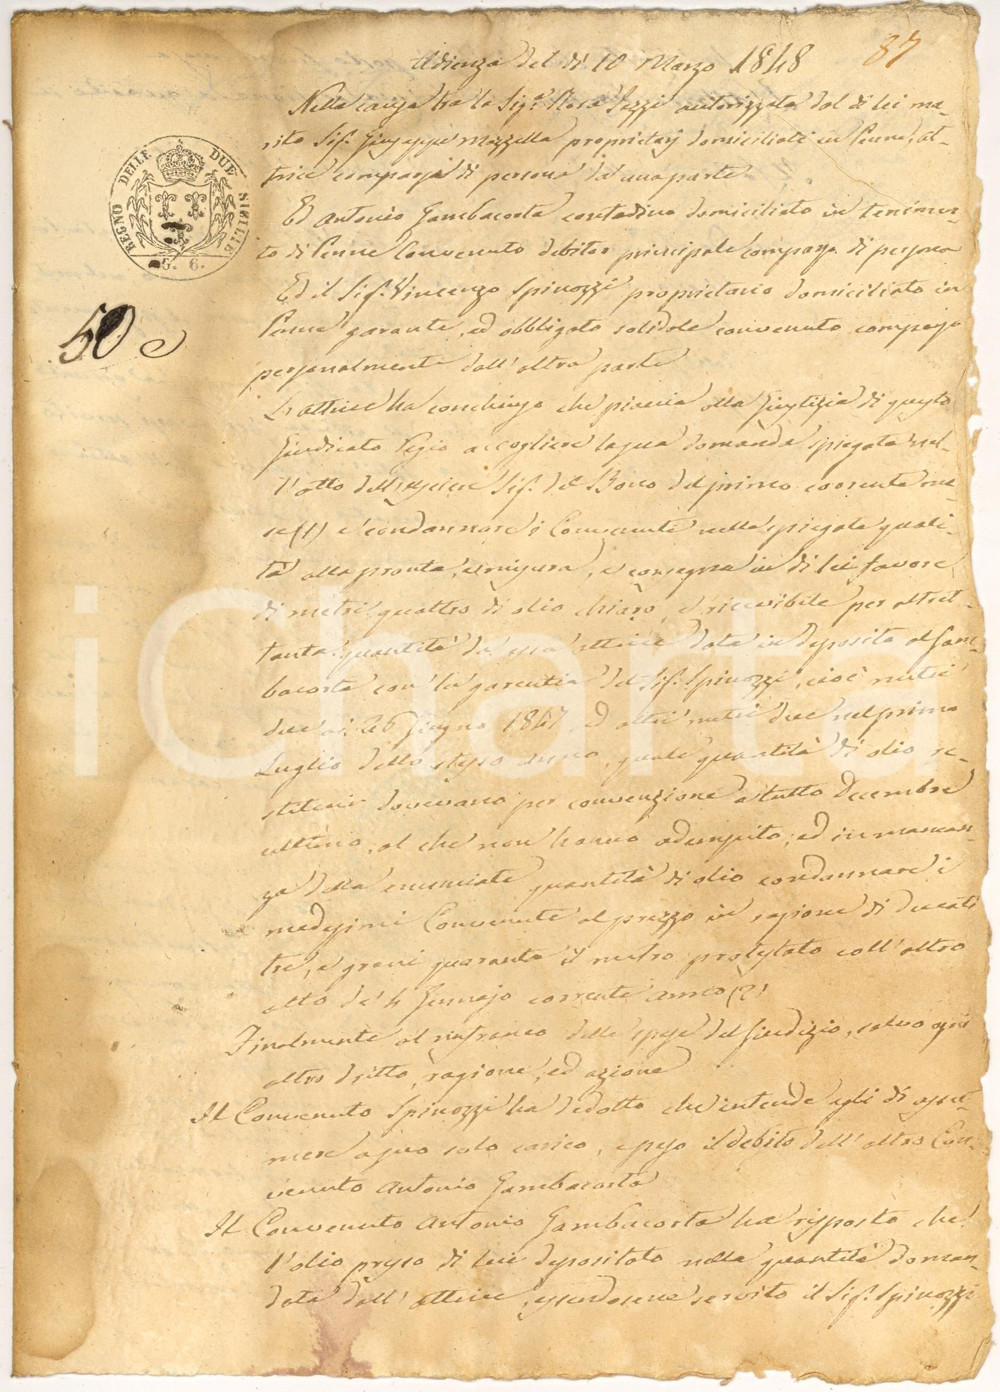 Udienza del dì 10 Marzo 1848
87
Nella causa tra la Sig.ª Rosa Pezzi autorizzata dal di lei ma-
rito Sig.r Giuseppe Mazzella proprietarj domiciliati in Penne, at-
trice comparsa di persona da una parte
Ed Antonio Gambacorta contadino domiciliato in tenimen-
to di Penne Convenuto debitor principale comparso di persona
Ed il Sig.r Vincenzo Spinozzi proprietario domiciliato in
Penne garante, ed obbligato solidale convenuto comparso
personalmente dall'altra parte
L'attrice ha conchiuso che piaccia alla Giustizia di questo
Giudicato Regio accogliere la sua domanda spiegata nel-
l'atto dell'usciere Sig.r del Bono del primo corrente me-
se (1) e condannare i Convenuti nella spiegata quali-
tà alla pronta, misura, e consegna in di lei favore
di metri quattro di olio chiaro, e ricevibile per altret-
tanta quantità da essa attrice data in deposito al Gam-
bacorta con la garentia del Sig.r Spinozzi, cioè metri
due a' 26 Giugno 1847, ed altri metri due nel primo
Luglio dello stesso anno, quale quantità di olio re-
stituir dovevano per convenzione a tutto Decembre
ultimo, al che non hanno adempito; ed in mancan-
za della enunciata quantità di olio condannare i
medesimi Convenuti al prezzo in ragione di ducati
tre, e grani quaranta il metro protestato coll'altro
atto de' 4 Gennajo corrente anno (2)
Finalmente al rinfranco delle spese del Giudizio, salvo ogni
altro dritto, ragione, ed azione
Il Convenuto Spinozzi ha dedotto che intende egli di assu-
mere a suo solo carico, e peso il debito dell'altro Con-
venuto Antonio Gambacorta
Il Convenuto Antonio Gambacorta ha risposto che
l'olio preso di lui depositato nella quantità doman-
data dall'attrice, essendosene servito il Sig.r Spinozzi
REGNO DELLE DUE SICILIE
G. 6.
50
iCharta